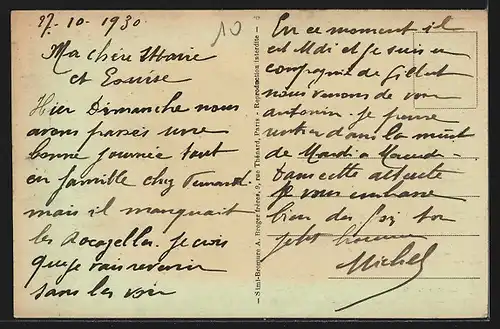 27-10-1930
10
Ma chère Marie
et Louise
Hier Dimanche nous
avons passés une
bonne journée tout
en famille chez Fernand.
mais il manquait
les Rocagella. Je crois
que je vais revenir
sans les voir
— Simi-Bromure A. Breger frères, 9, rue Thénard, Paris - Reproduction interdite —
En ce moment il
est Midi et je suis en
compagnie de
nous venons de voir
antonin. je pense
rentrer dans la nuit
de Mardi a
Dans cette attente
je vous embrasse
bien des fois ton
petit homme
Michel